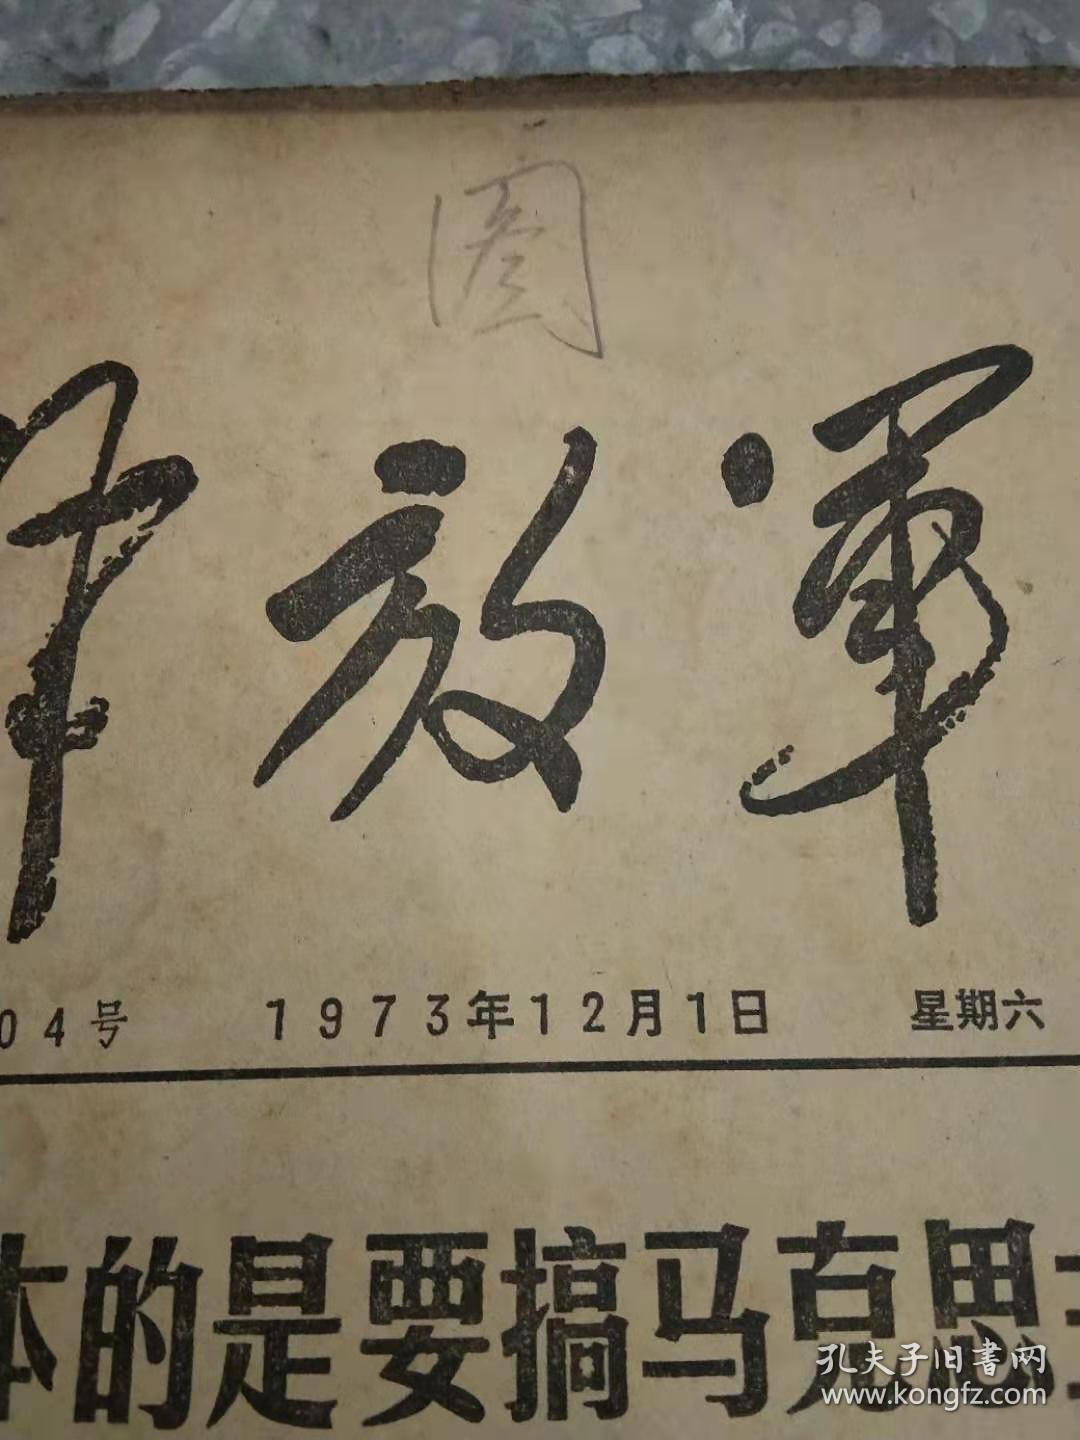 解放军
04号 1973年12月1日 星期六
本的是要搞马克思主
孔夫子旧書网
www.kongfz.com